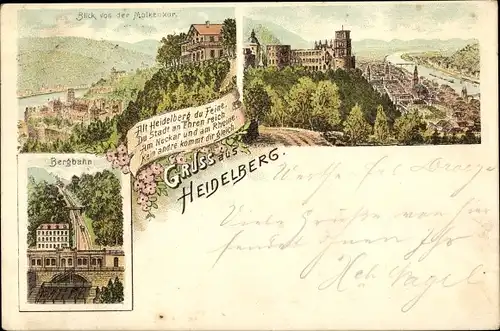 Blick von der Molkenkur.
Alt Heidelberg du Feine,
Du Stadt an Ehren reich
Am Neckar und am Rheine
Kein' andre kommt dir gleich.
Gruss aus
Heidelberg.
Bergbahn
Viele Grüsse von hier
sendet Ihnen Ihr